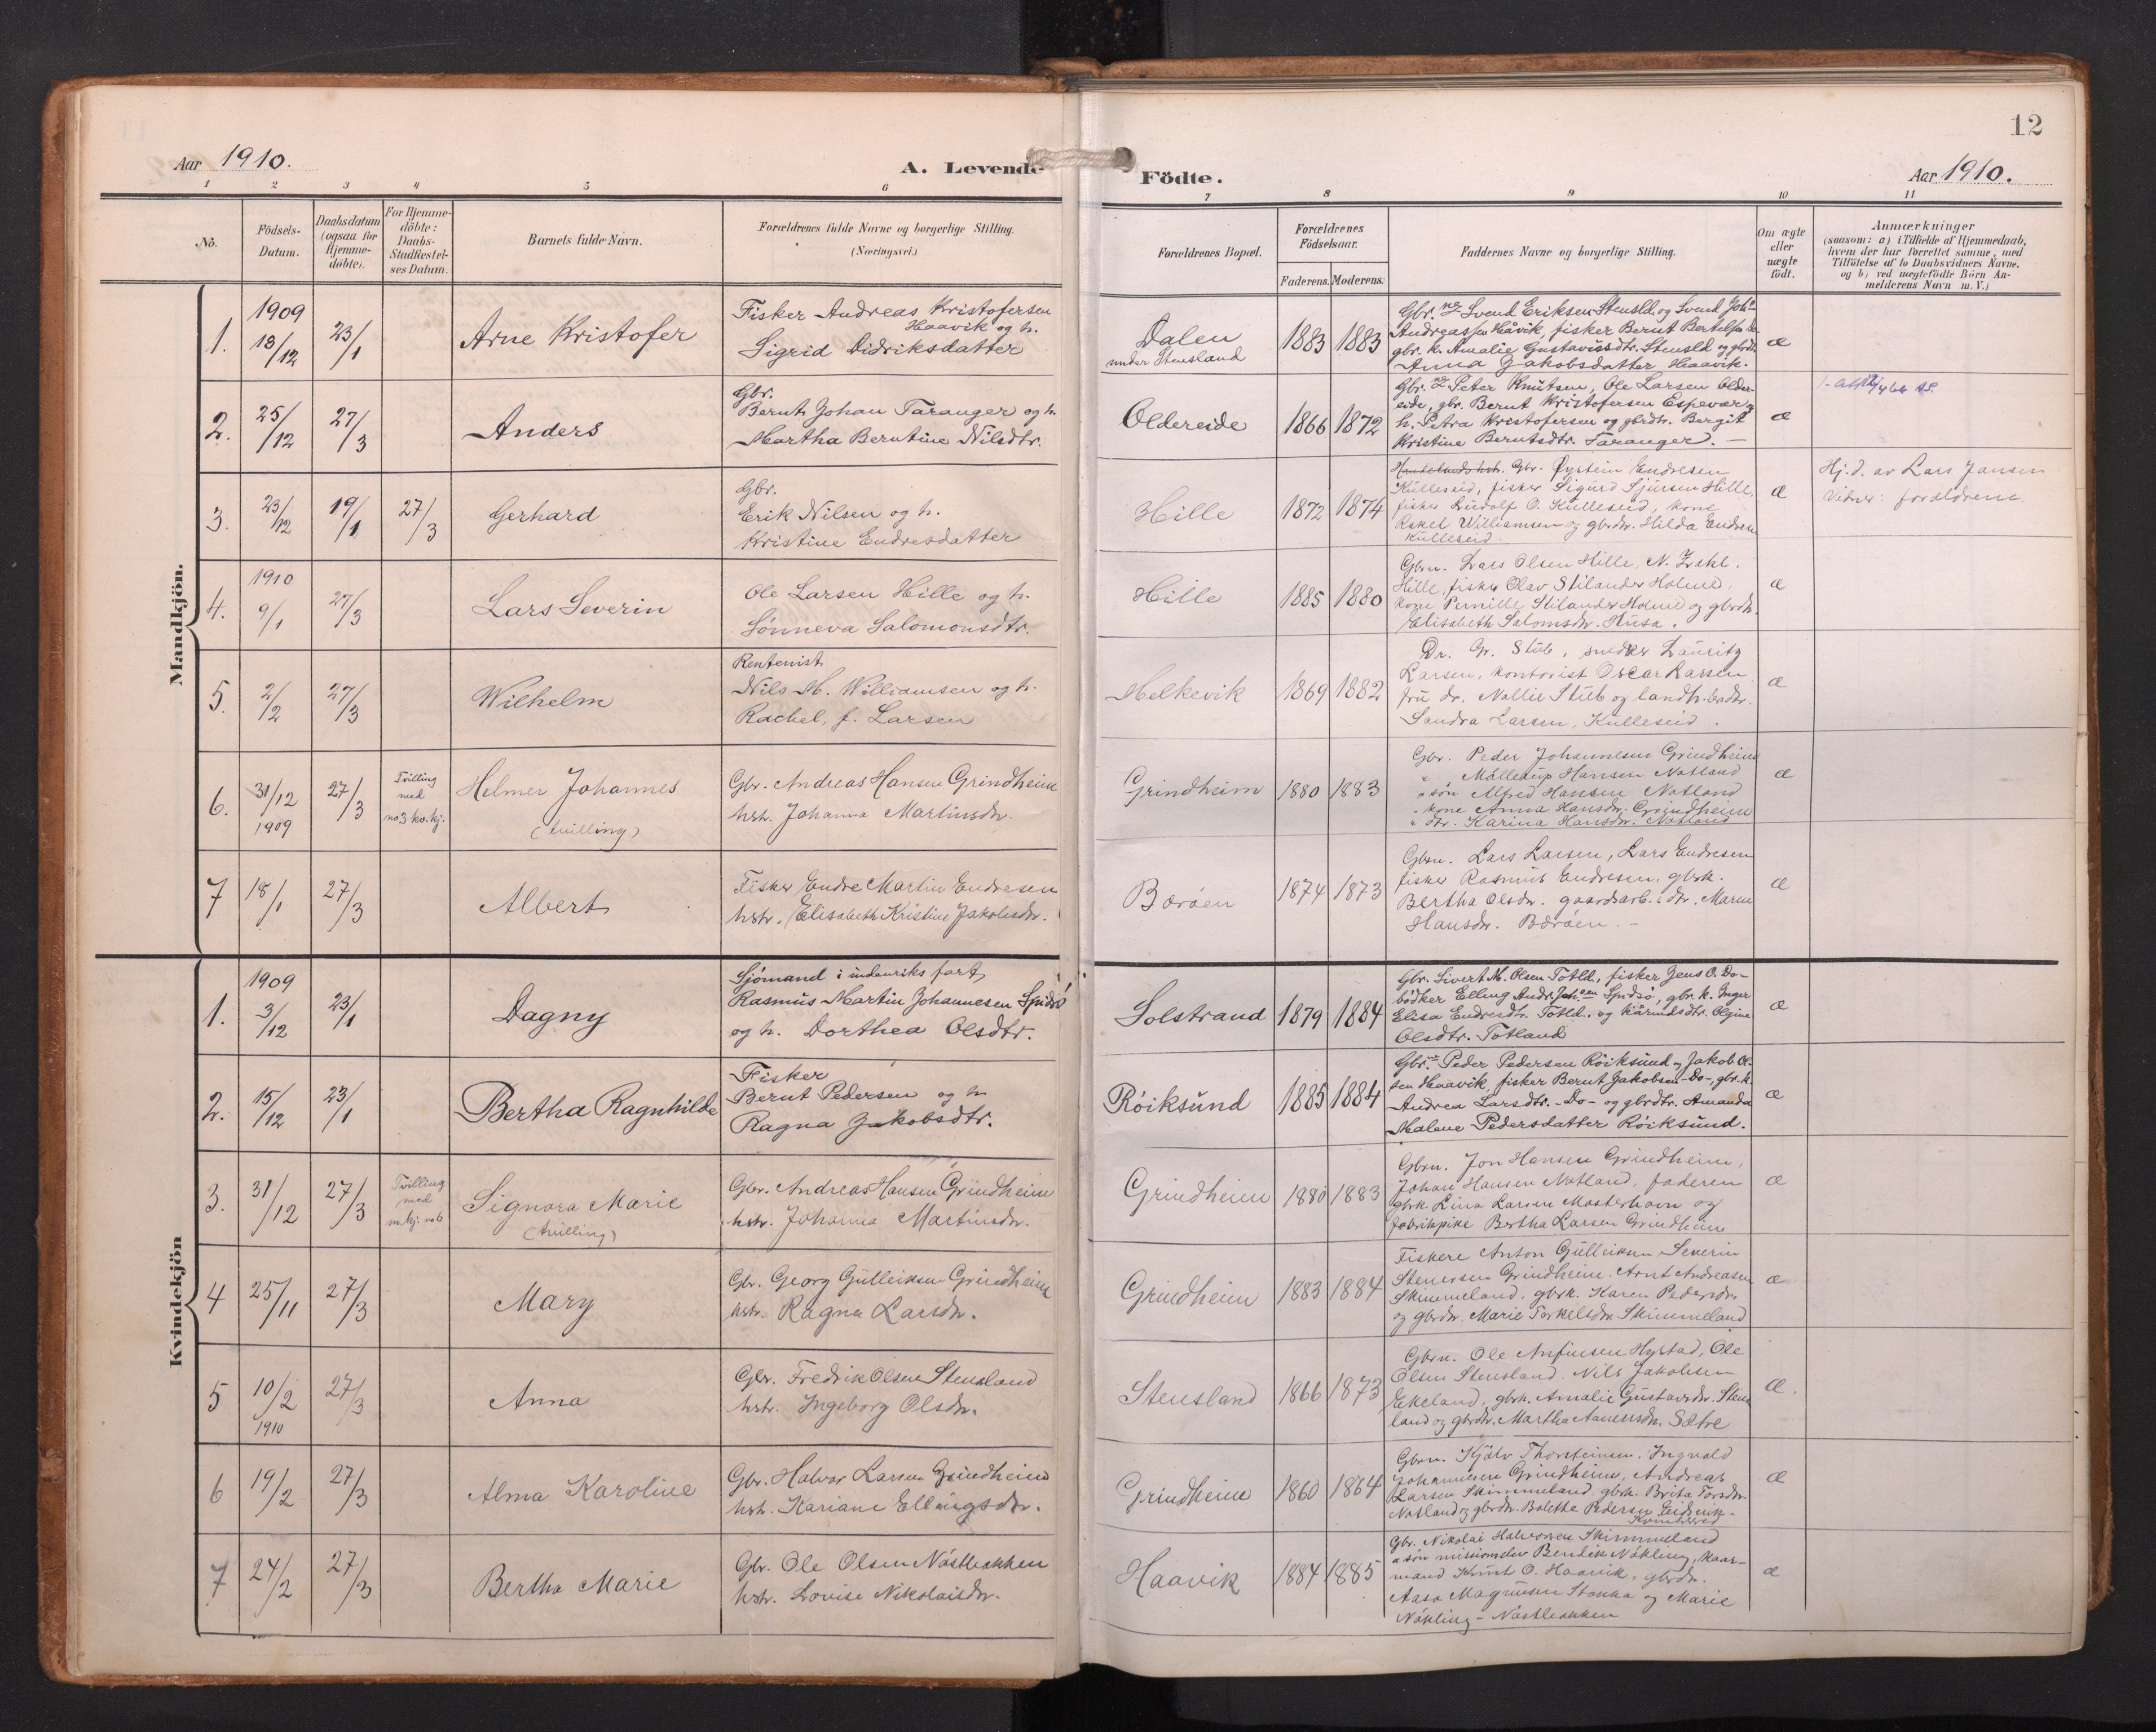 12
Aar 1910.
A. Levende Födte.
Aar 1910.
1 2 3 4 5 6 7 8 9 10 11
No.
Födsels-
Datum.
Daabsdatum
(ogsaa for
Hjemme-
döbte).
For Hjemme-
döbte:
Daabs-
Stadfæstel-
ses Datum.
Barnets fulde Navn.
Forældrenes fulde Navne og borgerlige Stilling.
(Næringsvei.)
Forældrenes Bopæl.
Forældrenes
Födselsaar.
Faderens. Moderens.
Faddernes Navne og borgerlige Stilling.
Om ægte
eller
uægte
födt.
Anmærkninger
(saasom: a) i Tilfælde af Hjemmedaab,
hvem der har forrettet samme, med
Tilföielse af to Daabsvidners Navne,
og b) ved uægtefödte Börn An-
melderens Navn m. V.)
Mandkjön.
1.
1909
13/12
23/1
Arne Kristofer
Fisker Andreas Kristofersen
Haavik og h.
Sigrid Didriksdatter
Dalen
under Stensland
1883 1883
Gbr.ne Svend Eriksen Stensld. og Svend Joh.
Andreassen Håvik, fisker Bernt Bertels
gbr. k. Amalie Gustavsdtr. Stensld og gbrdtr.
Anna Jakobsdatter Haavik.
æ
2.
25/12
27/3
Anders
Gbr.
Bernt Johan Taranger og h.
Martha Berntine Nilsdtr.
Oldereide
1866 1872
Gbr.ne Peter Knutsen, Ole Larsen Older-
eide, gbr. Bernt Kristofersen Espevær,
h. Petra Kristofersen og gbrdtr. Bergit
Kristine Berntsdtr. Taranger. –
æ
3.
23/12
19/1
27/3
Gerhard
Gbr.
Erik Nilsen og h.
Kristine Endresdatter
Hille
1872 1874
Gbr. Øystein Endresen
Kulleseid, fisker Sigurd Sjursen Hille,
fisker Ludolf O. Kulleseid, kone
Rakel Williamsen og gbrdtr. Hilda Endresen
Kulleseid.
æ
Hj.d. av Lars Jansen
Vidner: forældrene.
4.
1910
9/1
27/3
Lars Severin
Ole Larsen Hille og h.
Sönneva Salomonsdtr.
Hille
1885 1880
Gbrn. Lars Olsen Hille, N. Zahl.
Hille, fisker Olav Stilander Holme,
kone Pernille Stilander Holme og gbrdtr.
Elisabeth Salomsdtr. Husa.
æ
5.
2/2
27/3
Wilhelm
Rentenist
Nils M. Williamsen og h.
Rachel, f. Larsen
Melkevik
1869 1882
Dr. Gr. Stub, smeder Lauritz
Larsen, kontorist Oscar Larsen,
fru dr. Nallie Stub og landh.brdtr.
Sandra Larsen, Kulleseid.
æ
6.
31/12
1909
27/3
Tvilling
med
no 3 kv.kj.
Helmer Johannes
(tvilling)
Gbr. Andreas Hansen Grindheim
hstr. Johanna Martinsdtr.
Grindheim
1880 1883
Gbr. Peder Johannesen Grindheim
" Mallerup Hansen Notland
" sön Alfred Hansen Notland
" kone Anna Hansdtr. Grindheim
" dtr. Karina Hansdtr. Notland
æ
7
18/1
27/3
Albert
Fisker Endre Martin Endresen
hstr. Elisabeth Kristine Jakobsdtr.
Boröen
1874 1873
Gbrn. Lars Larsen, Lars Endresen
fisker Rasmus Endresen, gbrk.
Bertha Olsdtr. gaardsarb. dtr. Maren
Hansdtr. Boröen. –
æ
Kvindekjön
1.
1909
3/12
23/1
Dagny
Sjömand i indenriks fart
Rasmus Martin Johannesen Spidsö
og h. Dorthea Olsdtr.
Solstrand
1879 1884
Gbr. Sivert M. Olsen Totld., fisker Jens O. Do-
bödker Elling Andr. Johsen Spidsö, gbr. k. Inger
Elisa Endresdtr. Totld. og kårmdsdtr. Olgine
Olsdtr. Totland
æ
2.
15/12
23/1
Bertha Ragnhilde
Fisker
Bernt Pedersen og h
Ragna Jakobsdtr.
Röiksund
1885 1884
Gbr.ne Peder Pedersen Röiksund og Jakob Ol-
sen Haavik, fisker Bernt Jakobsen -Do-, gbr. k.
Andrea Larsdtr. -Do- og gbrdtr. Amanda
Malene Pedersdatter Röiksund.
æ
3.
31/12
27/3
Tvilling
med
m.kj. no 6
Signora Marie
(tvilling)
Gbr. Andreas Hansen Grindheim
hstr. Johanna Martinsdtr.
Grindheim
1880 1883
Gbrn. Jon Hansen Grindheim,
Johan Hansen Notland, faderen
gbrk. Lina Larsen Mosterhavn og
fabrikpike Bertha Larsen Grindheim
æ
4
25/11
27/3
Mary
Gbr. Georg Gulleiksen Grindheim
hstr. Ragna Larsdtr.
Grindheim
1883 1884
Fiskere Anton Gulleiksen, Severin
Stenersen Grindheim, Arnt Andreasen
Skimmeland, gbrk. Karen Pedersdtr.
og gbrdtr. Marie Torkelsdtr. Skimmeland
æ
5
10/2
1910
27/3
Anna
Gbr. Fredrik Olsen Stensland
hstr. Ingeborg Olsdtr.
Stensland
1866 1873
Gbrn. Ole Anfinsen Hystad, Ole
Olsen Stensland, Nils Jakobsen
Ekeland, gbrk. Amalie Gustavsdtr. Stens
land og gbrdtr. Martha Aanensdtr. Sætre
æ.
6
19/2
27/3
Alma Karoline
Gbr. Halvor Larsen Grindheim
hstr. Kariane Ellingsdtr.
Grindheim
1860 1864
Gbrn. Kjölv Thorsteinsen, Ingvald
Johannesen Grindheim, Andreas
Larsen Skimmeland, gbrk. Brita Torsdtr.
Notland og gbrdtr. Bolette Pedersen
æ
7
24/2
27/3
Bertha Marie
Gbr. Ole Olsen Nöstbakken
hstr. Lovise Nikolaisdtr.
Haavik
1884 1885
Gbr. Nikolai Halvorsen Skimmeland
" sön missionselev Bendik Nökling, kaar-
mand Knut O. Haavik, gbrdtr.
Aasa Magnusen Stonka og Marie
Nökling – Nöstbakken
æ